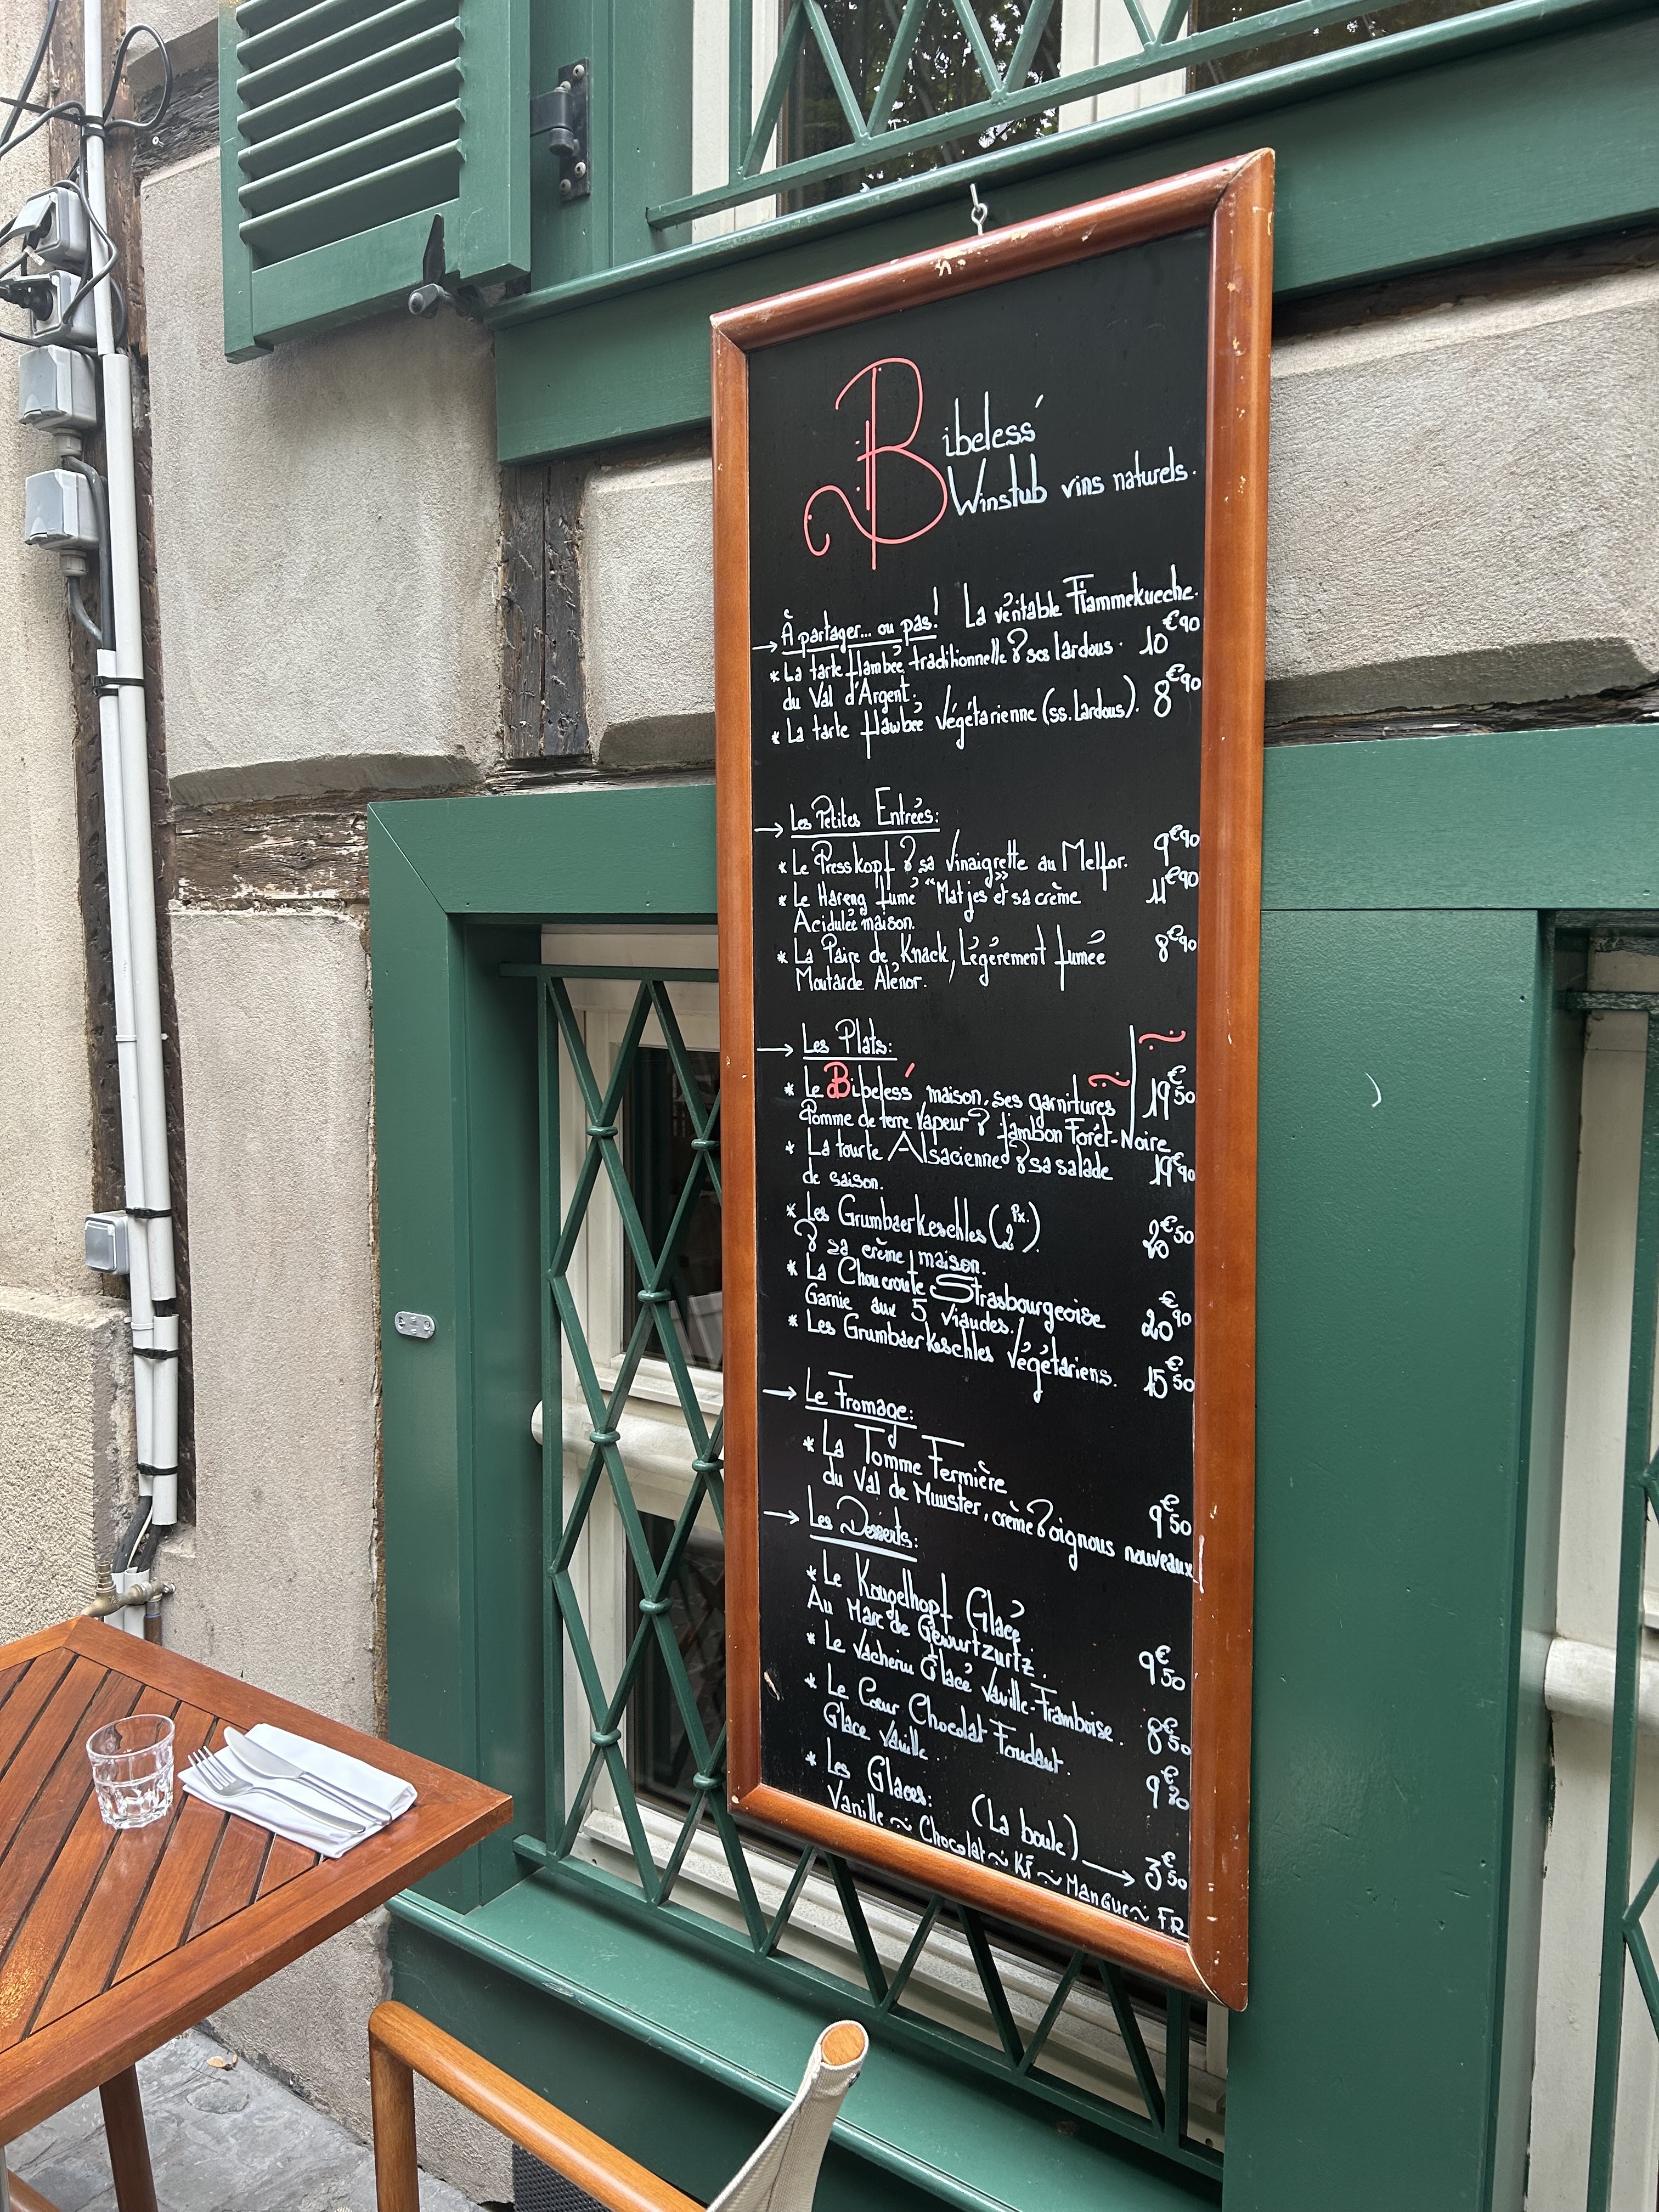 Bibeless'
Winstub vins naturels.
À partager... ou pas! La véritable Flammekueche.
* La tarte flambée traditionnelle & ses lardons. 10€90
du Val d'Argent.
* La tarte flambée végétarienne (ss. lardons). 8€90
Les Petites Entrées:
* Le Presskopf & sa vinaigrette au Melfor. 9€90
* Le Hareng fumé "Matjes" et sa crème 11€90
Acidulée maison.
* La Paire de Knack, Légèrement fumée 8€90
Moutarde Alénor.
Les Plats:
* Le Bibeless' maison, ses garnitures 19€50
Pomme de terre vapeur & Jambon Forêt-Noire
* La tourte Alsacienne & sa salade 19€90
de saison.
* Les Grumbaerkeschles (2 Px.) 20€50
& sa crème maison.
* La Choucroute Strasbourgeoise 20€90
Garnie aux 5 viandes!
* Les Grumbaerkeschles végétariens. 15€50
Le Fromage:
* La Tomme Fermière
du Val de Munster, crème & oignons nouveaux 9€50
Les Desserts:
* Le Kougelhopf Glacé
Au Marc de Gewurtzurtz. 9€50
* Le Vacherin Glacé Vanille-Framboise. 8€50
* Le Cœur Chocolat Fondant.
Glace Vanille. 9€
* Les Glaces: (La boule) 3€50
Vanille ~ Chocolat ~ ~ Mangue ~ FR